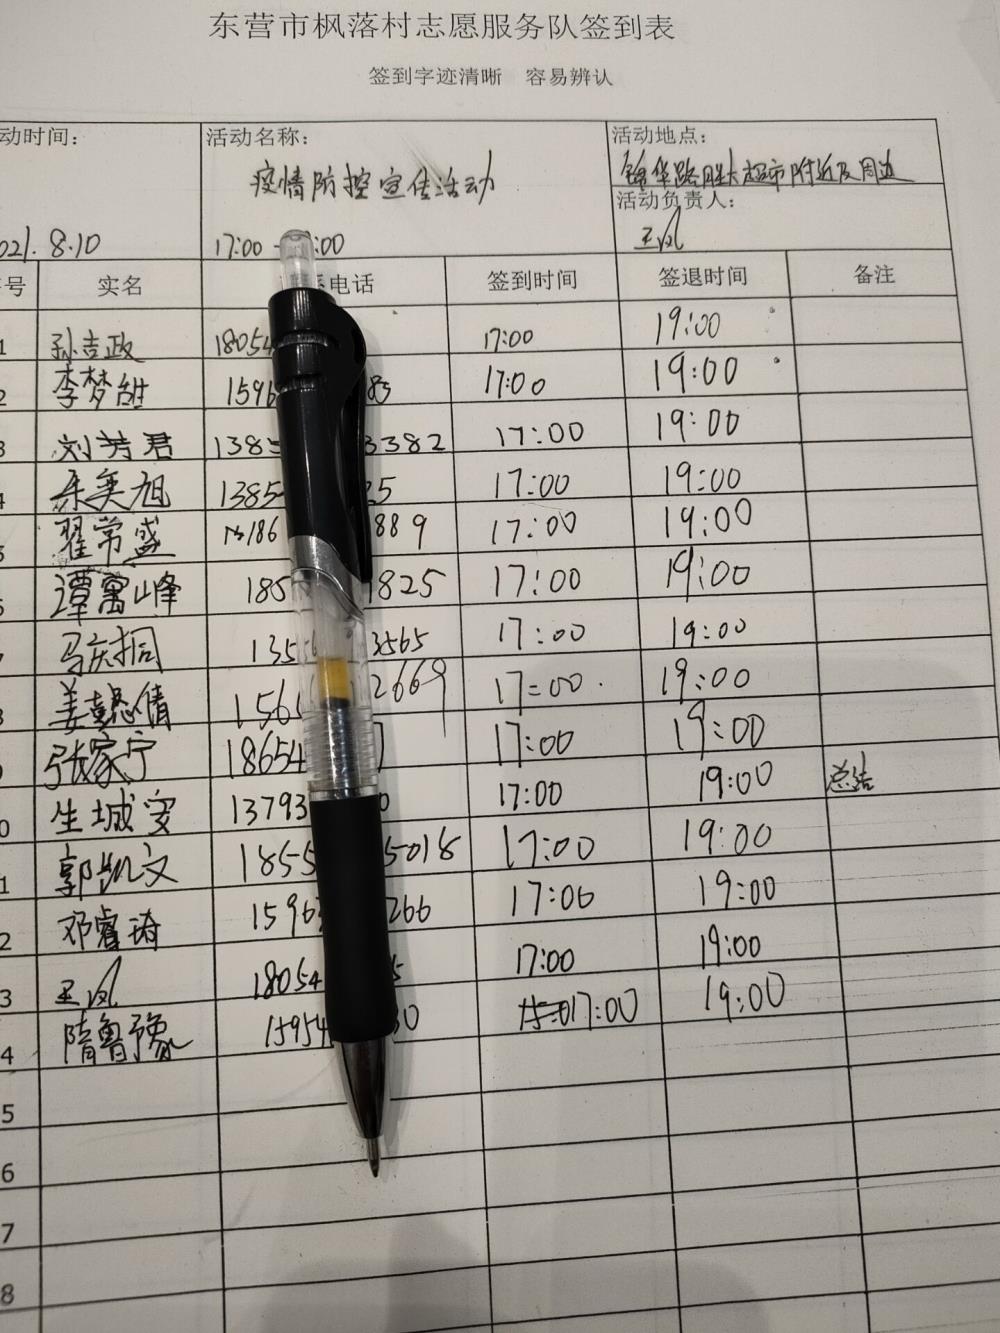 东营市枫落村志愿服务队签到表
签到字迹清晰 容易辨认
动时间： 活动名称： 活动地点：
疫情防控宣传活动 锦华路胜大超市附近及周边
活动负责人：
021.8.10 17:00 :00 王凤
号 实名 电话 签到时间 签退时间 备注
1 孙吉政 18054 17:00 19:00
2 李梦雄 1596 85 17:00 19:00
3 刘芳君 1385 3382 17:00 19:00
4 奕旭 1385 25 17:00 19:00
5 翟常盛 186 889 17:00 19:00
6 谭寓峰 185 1825 17:00 19:00
7 马庆桐 135 3565 17:00 19:00
8 姜 倩 156 2669 17:00 19:00
9 张家宁 18654 17:00 19:00
0 生城安 13793 0 17:00 19:00 总结
1 郭凯文 1855 5018 17:00 19:00
2 邓睿涛 1596 266 17:00 19:00
3 王凤 18054 5 17:00 19:00
4 隋鲁豫 15954 30 17:00 19:00
5
6
7
8